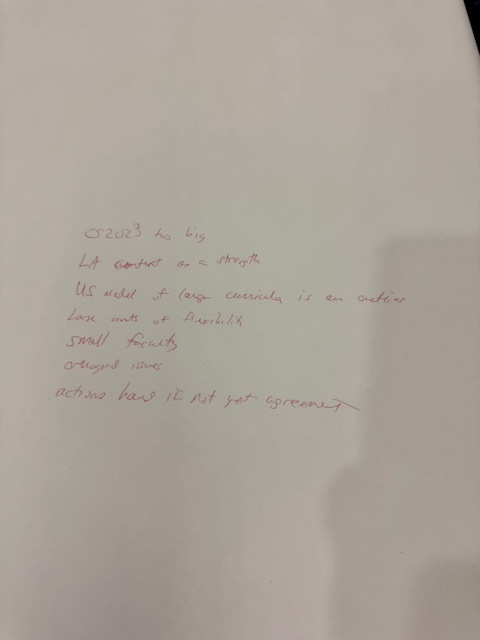 CS2023 too big
LA context as a strength
US model of large curricula is an outlier
Large amts of flexibility
small faculty
orthogonal issues
actions hard if not yet agreement